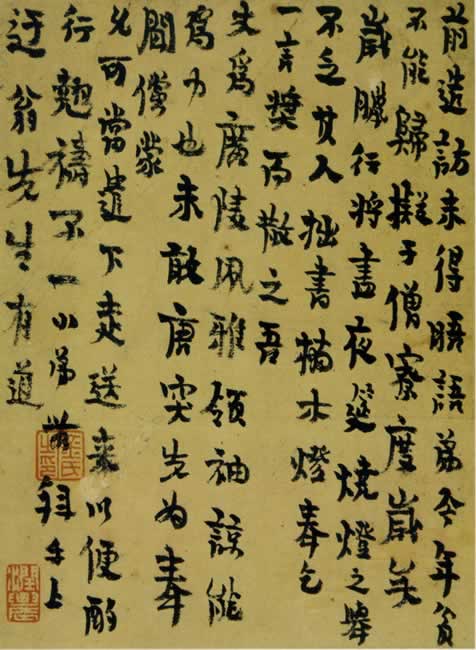 前造訪未得晤語弟今年貧
不能歸擬于僧寮度歲矣
歲臘行將盡夜筵燒燈之舉
不乏其人拙書描木燈奉乞
一言獎而散之吾
丈為廣陵風雅領袖諒能
為力也未敢唐突先為奉
聞儻蒙
允可當遣下走送來以便酌
行翹禱不一小弟農上
迂翁先生有道